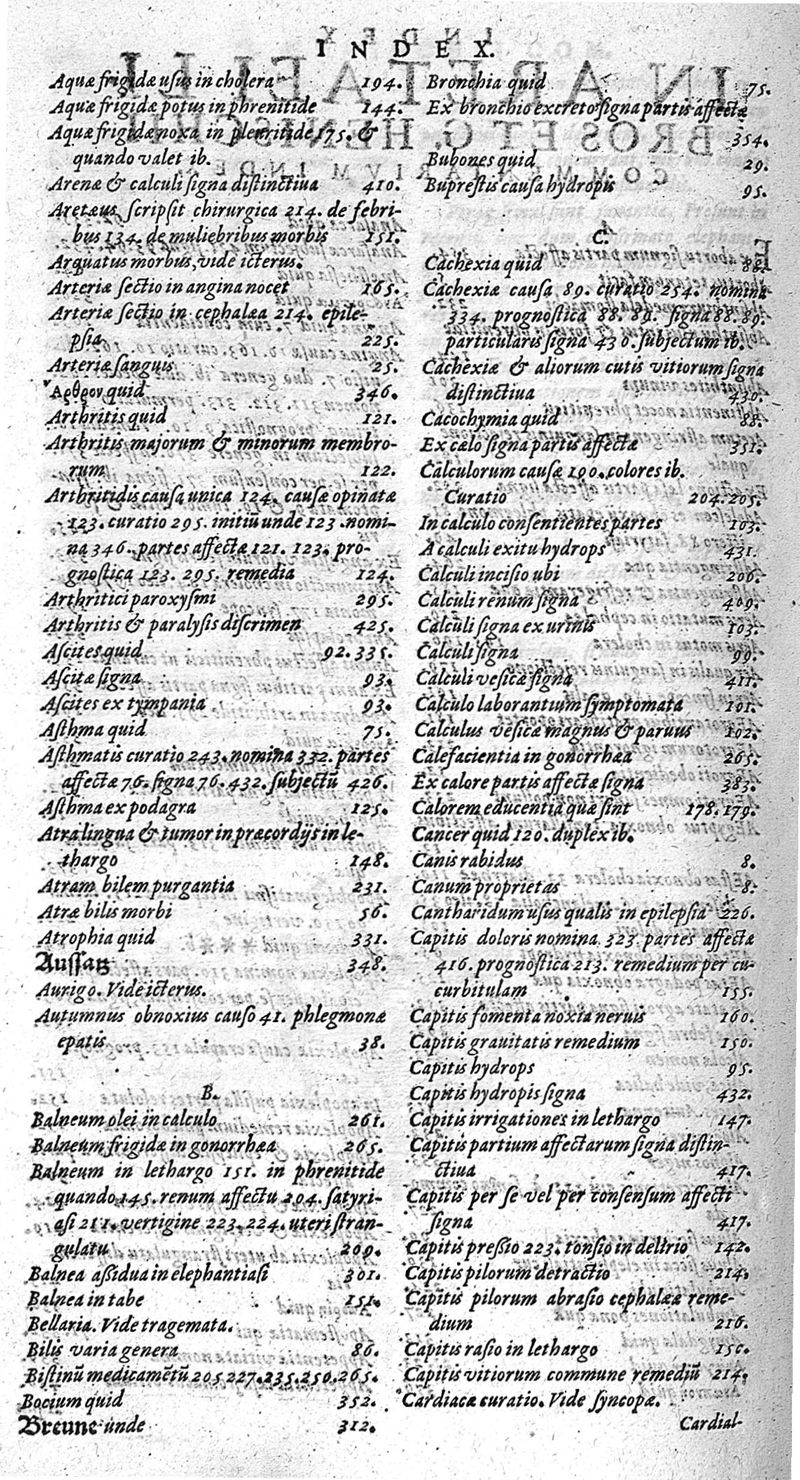 INDEX.
Aquæ frigidæ usus in cholera 194.
Aquæ frigidæ potus in phrenitide 144.
Aquæ frigidæ noxa in pleuritide 175. &
quando valet ib.
Arenæ & calculi signa distinctiua 410.
Aretæus scripsit chirurgica 214. de febri-
bus 134. de muliebribus morbis 151.
Arquatus morbus, vide icterus.
Arteriæ sectio in angina nocet 165.
Arteriæ sectio in cephalæa 214. epile-
psia 225.
Arteriæ sanguis 25.
Ἀρθρον quid 346.
Arthritis quid 121.
Arthritis majorum & minorum membro-
rum 122.
Arthritidis causa unica 124. causæ opinatæ
123. curatio 295. initiū unde 123. nomi-
na 346. partes affectæ 121. 123. pro-
gnostica 123. 295. remedia 124.
Arthritici paroxysmi 295.
Arthritis & paralysis discrimen 425.
Ascites quid 92. 335.
Ascitæ signa 93.
Ascites ex tympania 93.
Asthma quid 75.
Asthmatis curatio 243. nomina 332. partes
affectæ 76. signa 76. 432. subjectū 426.
Asthma ex podagra 125.
Atra lingua & tumor in præcordijs in le-
thargo 148.
Atram bilem purgantia 231.
Atræ bilis morbi 56.
Atrophia quid 331.
Aussatz 348.
Aurigo. Vide icterus.
Autumnus obnoxius causo 41. phlegmonæ
epatis 38.
B.
Balneum olei in calculo 261.
Balneum frigidæ in gonorrhæa 265.
Balneum in lethargo 151. in phrenitide
quando 145. renum affectu 204. satyri-
asi 211. vertigine 223. 224. uteri stran-
gulatu 209.
Balnea aßidua in elephantiasi 301.
Balnea in tabe 151.
Bellaria. Vide tragemata.
Bilis varia genera 86.
Bistinū medicamētū 205 227. 235. 250. 265.
Bocium quid 352.
Breune unde 312.
Bronchia quid 75.
Ex bronchio excreto signa partis affectæ
354.
Bubones quid 29.
Buprestis causa hydropis 95.
C.
Cachexia quid 88.
Cachexiæ causa 89. curatio 254. nomina
334. prognostica 88. 89. signa 88. 89.
particularis signa 430. subjectum ib.
Cachexiæ & aliorum cutis vitiorum signa
distinctiua 430.
Cacochymia quid 88.
Ex cælo signa partis affectæ 351.
Calculorum causæ 100. colores ib.
Curatio 204. 205.
In calculo consentientes partes 103.
A calculi exitu hydrops 431.
Calculi incisio ubi 206.
Calculi renum signa 409.
Calculi signa ex urinis 103.
Calculi signa 99.
Calculi vesicæ signa 411.
Calculo laborantium symptomata 101.
Calculus vesicæ magnus & paruus 102.
Calefacientia in gonorrhæa 265.
Ex calore partis affectæ signa 383.
Calorem educentia quæ sint 178. 179.
Cancer quid 120. duplex ib.
Canis rabidus 8.
Canum proprietas 8.
Cantharidum usus qualis in epilepsia 226.
Capitis doloris nomina 323. partes affectæ
416. prognostica 213. remedium per cu-
curbitulam 155.
Capitis fomenta noxia neruis 160.
Capitis grauitatis remedium 150.
Capitis hydrops 95.
Capitis hydropis signa 432.
Capitis irrigationes in lethargo 147.
Capitis partium affectarum signa distin-
ctiua 417.
Capitis per se vel per consensum affecti
signa 417.
Capitis preßio 223. tonsio in delirio 142.
Capitis pilorum detractio 214.
Capitis pilorum abrasio cephalææ reme-
dium 216.
Capitis rasio in lethargo 150.
Capitis vitiorum commune remediū 214.
Cardiacæ curatio. Vide syncopæ.
Cardial-